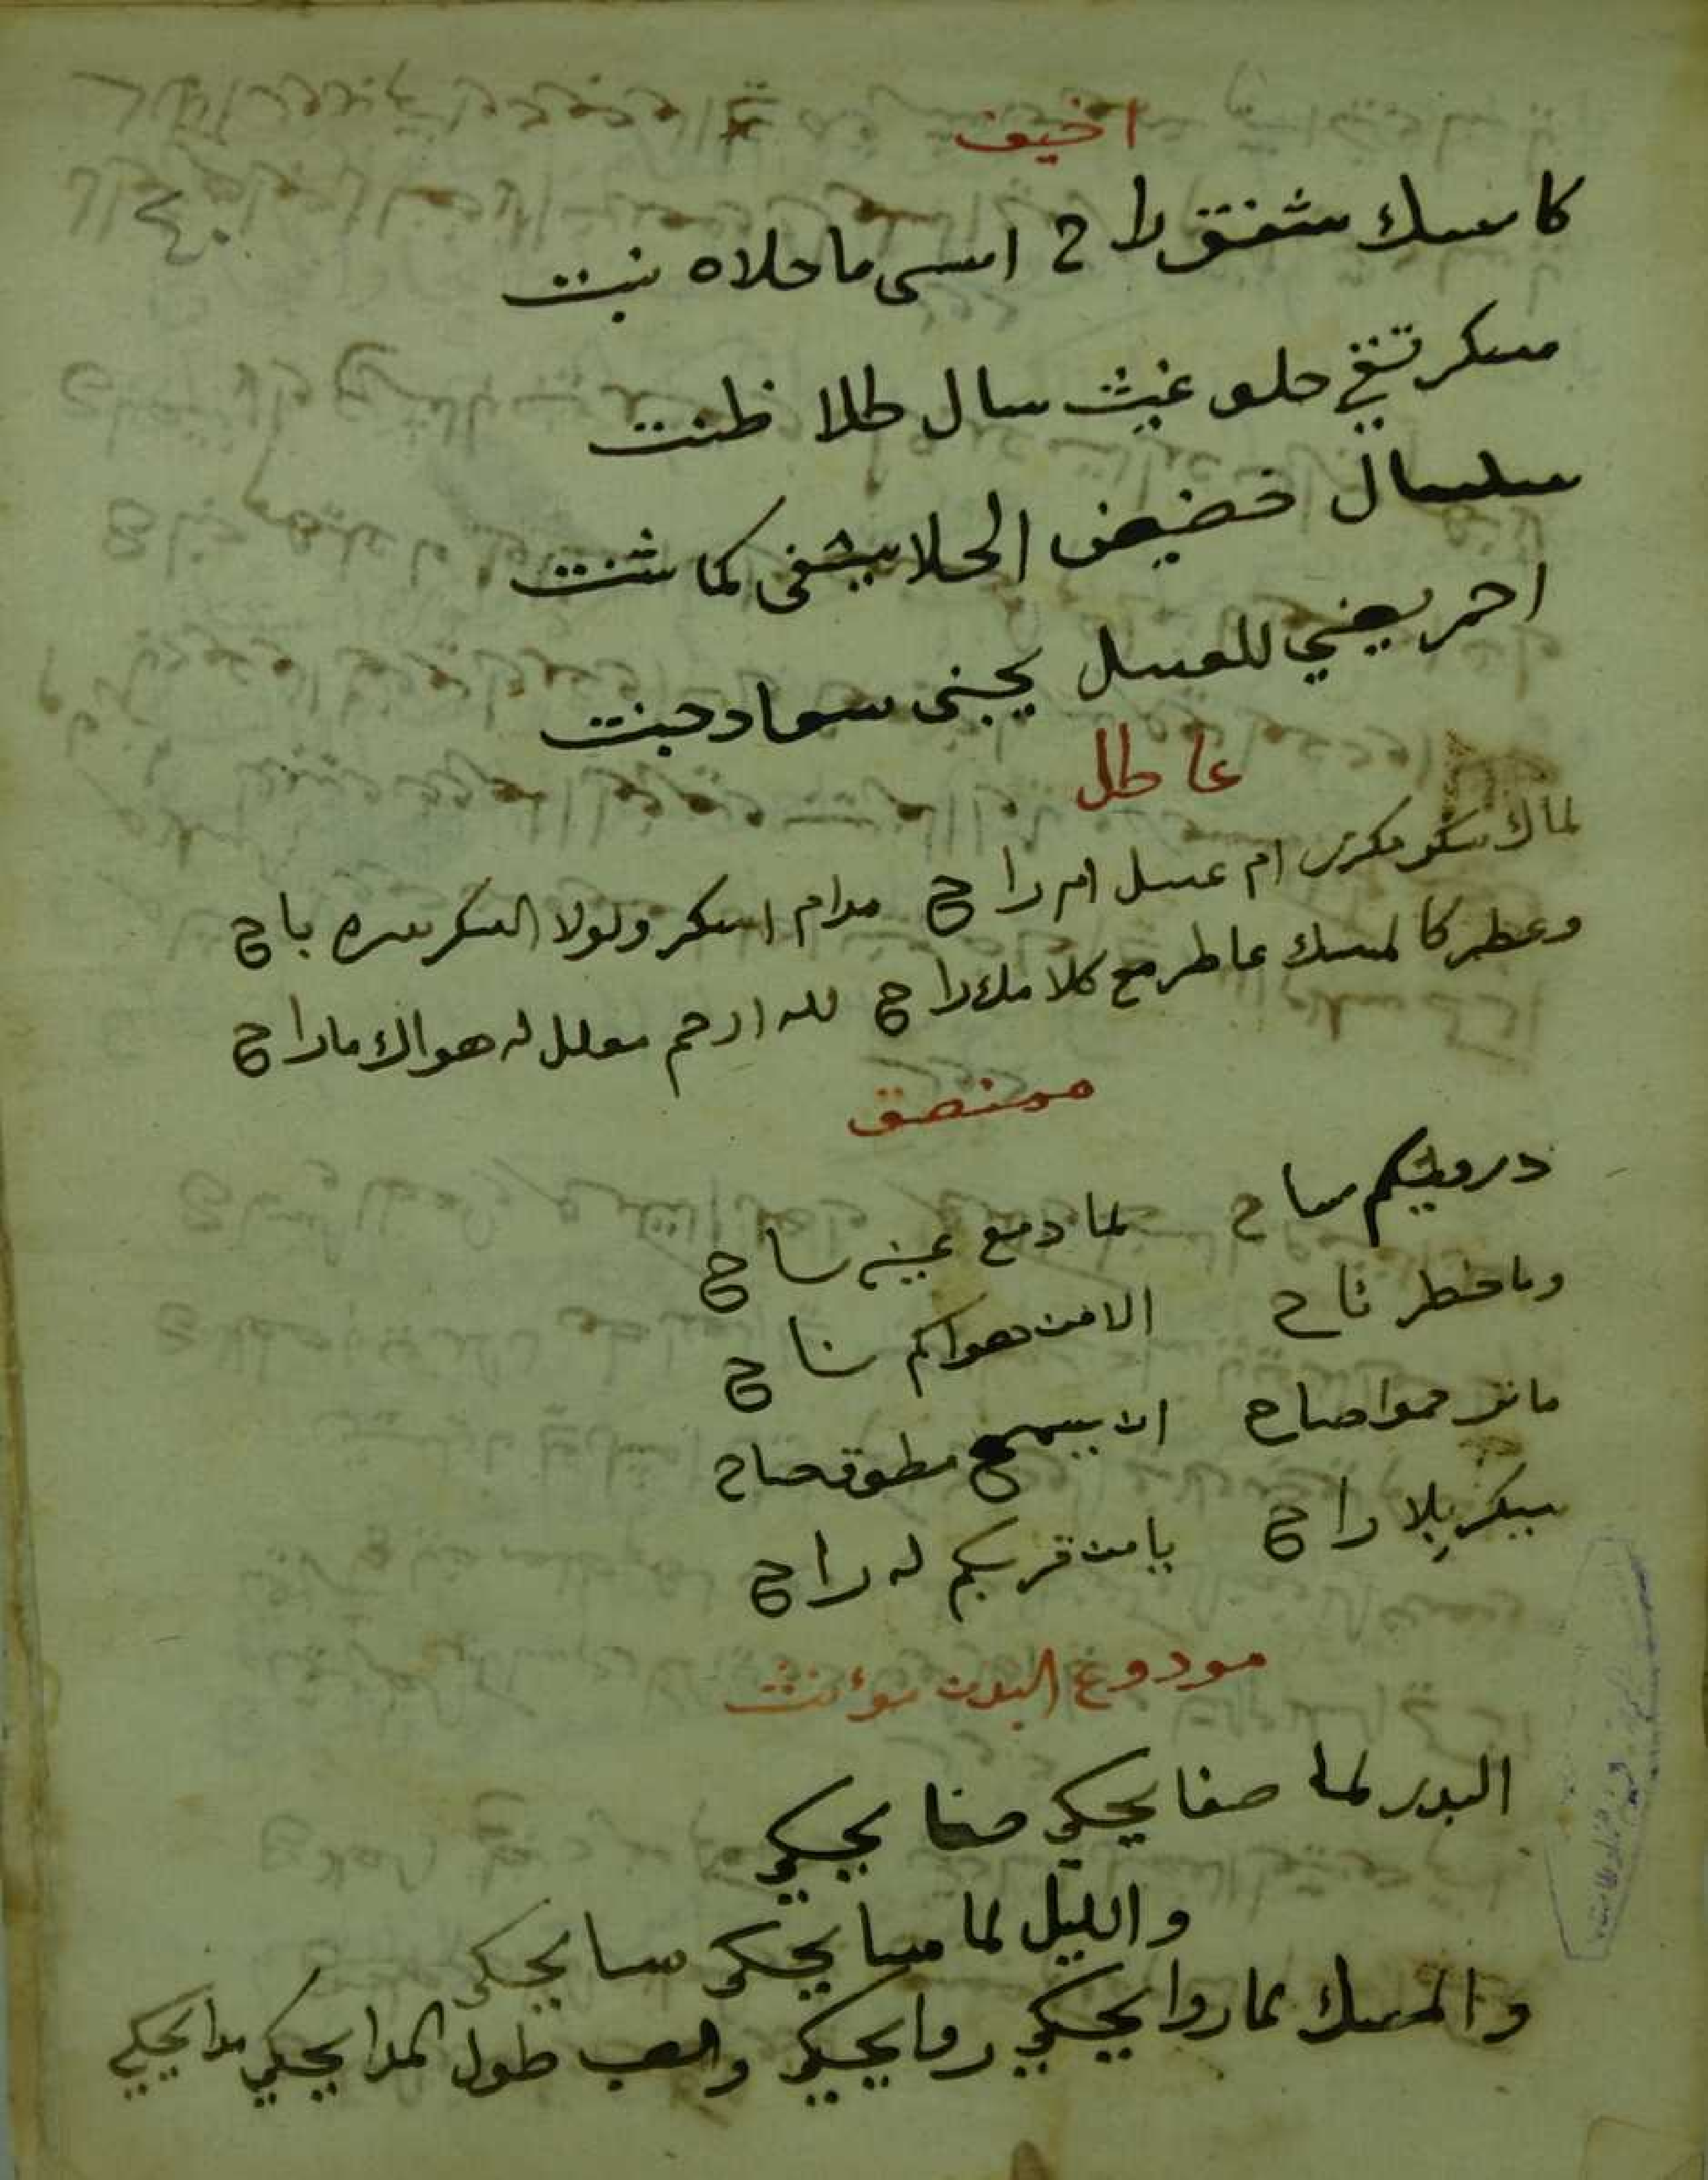 اخيف
كاسك شفق لاح امسى ما حلاه بنت
سكر تقي حلو غيث سال طلا ظنت
سلسال خضيض الحلا يشفى كما شنت
احمر يغني للعسل يجنى سعاد جنت
عاطل
لماك سكر مكرر ام عسل ام راح مدام اسكر ولولا السكر سره باح
وعطر كالمسك عاطر مع كلامك راح لله ارحم معلل له هواك ما راح
درويشكم ساح لما دمع عينه ساح
وما خطر ناح الا من هواكم ناح
ما ترحموا صاح ان يسمع مطوق صاح
يسكر بلا راح يا من قربكم له راح
مودوع البدن مؤنث
البدر لما صفا يحكي صفا يحكي
والليل لما مسا يحكي مسا يحكي
والمسك لما روا يحكي روا يحكي والصب طول المدا يحكي مدا يحكي
٤٠